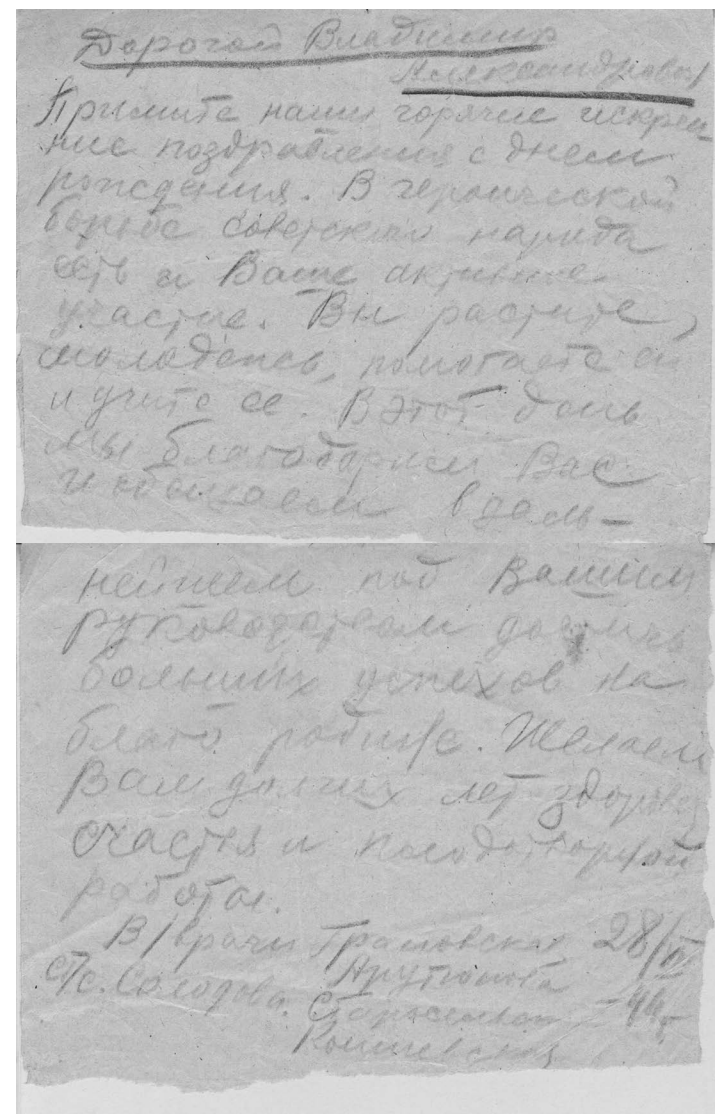 Дорогой Владимир
Александрович
Примите наши горячие искрен-
ние поздравления с днем
рождения. В героической
борьбе советского народа
есть и Ваше активное
участие. Вы растите,
молодежь, помогаете ей
и учите ее. В этот день
мы благодарим Вас
и обещаем в даль-
нейшем под Вашим
руководством достичь
больших успехов на
благо родине. Желаем
Вам долгих лет здоровья
счастья и плодотворной
работы.
В/врачи Грамовская 28/
Арутюнова
ст/с. Солодова. Старосельская -44 г.